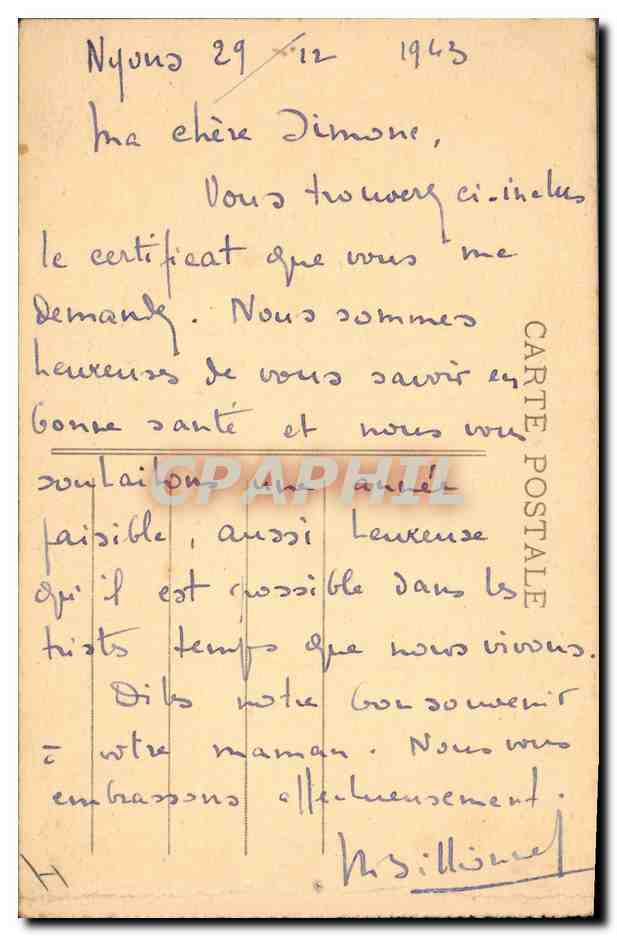 Nyons 29 - 12 1943
Ma chère Simone,
Vous trouverez ci-inclus
le certificat que vous me
demandez. Nous sommes
heureuses de vous savoir en
bonne santé et nous vous
souhaitons une année
paisible, aussi heureuse
qu'il est possible dans les
tristes temps que nous vivons.
Dites notre bon souvenir
à votre maman. Nous vous
embrassons affectueusement.
CARTE POSTALE
CPAPHIL